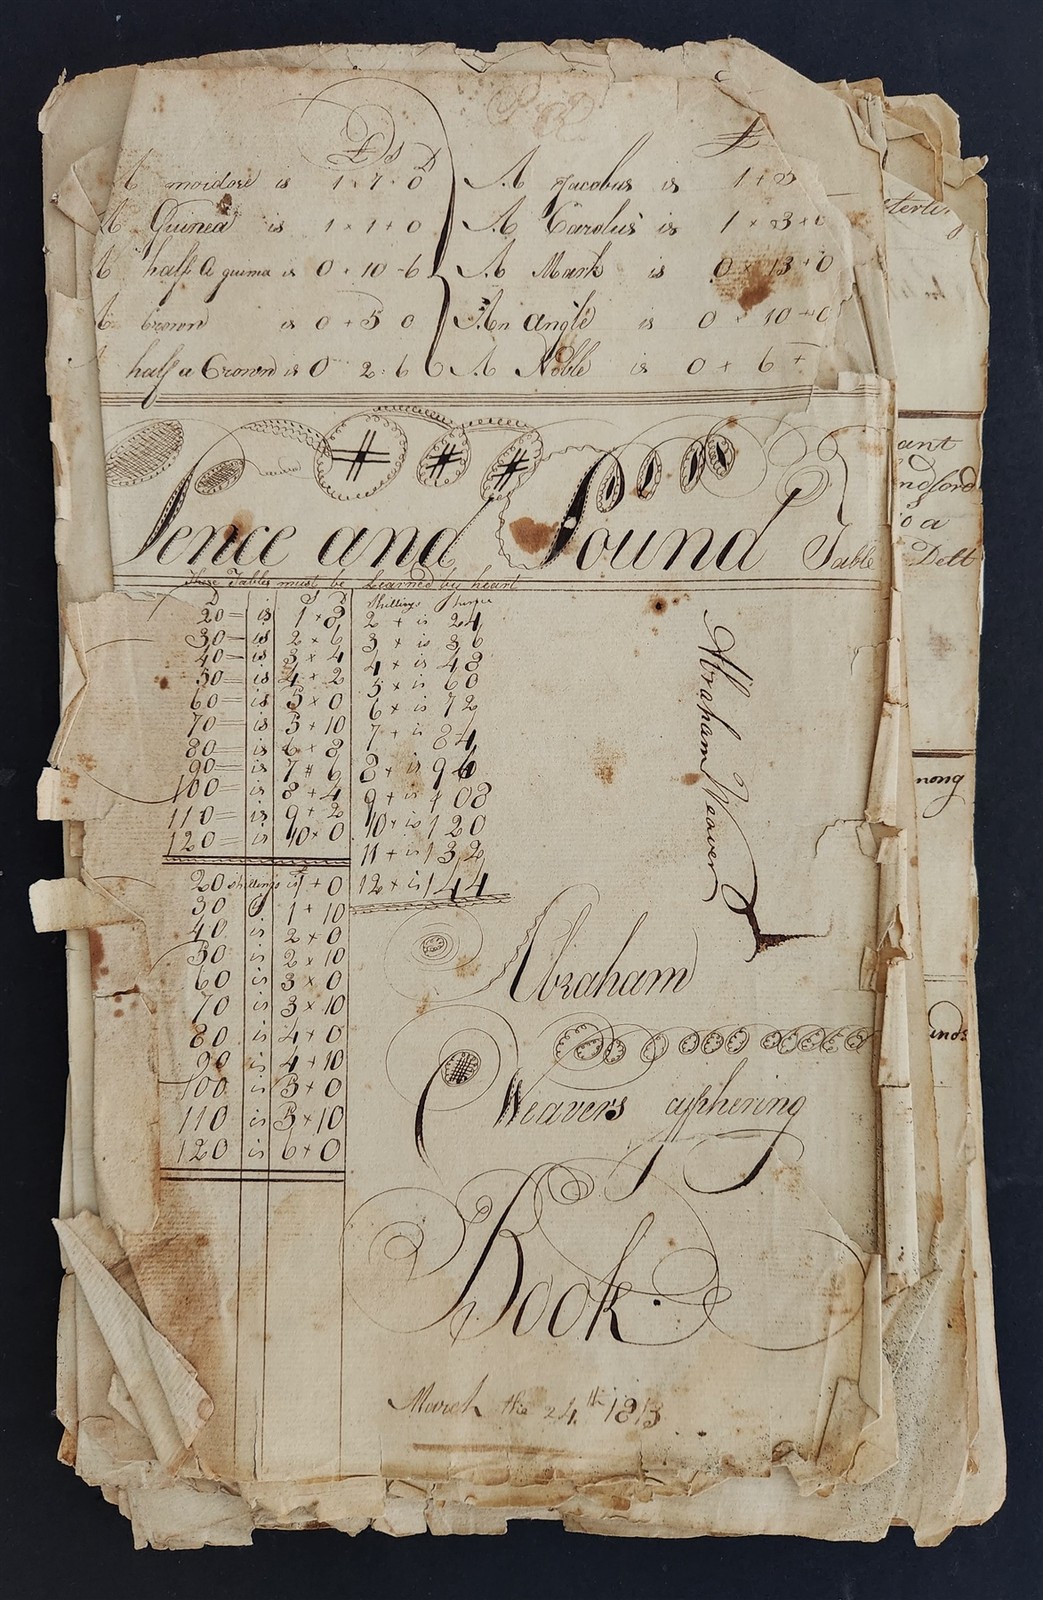 £ S D
A moidore is 1 × 7 · 0
A Guinea is 1 × 1 + 0
A half a guinea is 0 · 10 - 6
A Crown is 0 + 5 0
half a Crown is 0 2 : 6
£
A Jacobus is
A Carolus is 1 × 3 + 0
A Mark is 0 × 13 + 0
An angle is 0 × 10 + 0
A Noble is 0 + 6 +
Pence and Pound Table
These Tables must be Learned by heart
D S D
20 = is 1 × 8
30 = is 2 × 6
40 = is 3 × 4
50 = is 4 + 2
60 = is 5 × 0
70 = is 5 + 10
80 = is 6 × 8
90 = is 7 # 6
100 = is 8 + 4
110 = is 9 + 2
120 = is 10 × 0
20 shillings is 1 + 0
30 is 1 + 10
40 is 2 × 0
50 is 2 × 10
60 is 3 × 0
70 is 3 × 10
80 is 4 + 0
90 is 4 + 10
100 is 5 + 0
110 is 5 × 10
120 is 6 + 0
Shillings Pence
2 + is 24
3 × is 36
4 × is 48
5 × is 60
6 × is 72
7 + is 84
8 × is 96
9 + is 108
10 × is 120
11 + is 132
12 × is 144
Abraham Weaver
Abraham
Weavers cyphering
Book
March the 24th 1813
ant
ndford
o a
Delt
mong